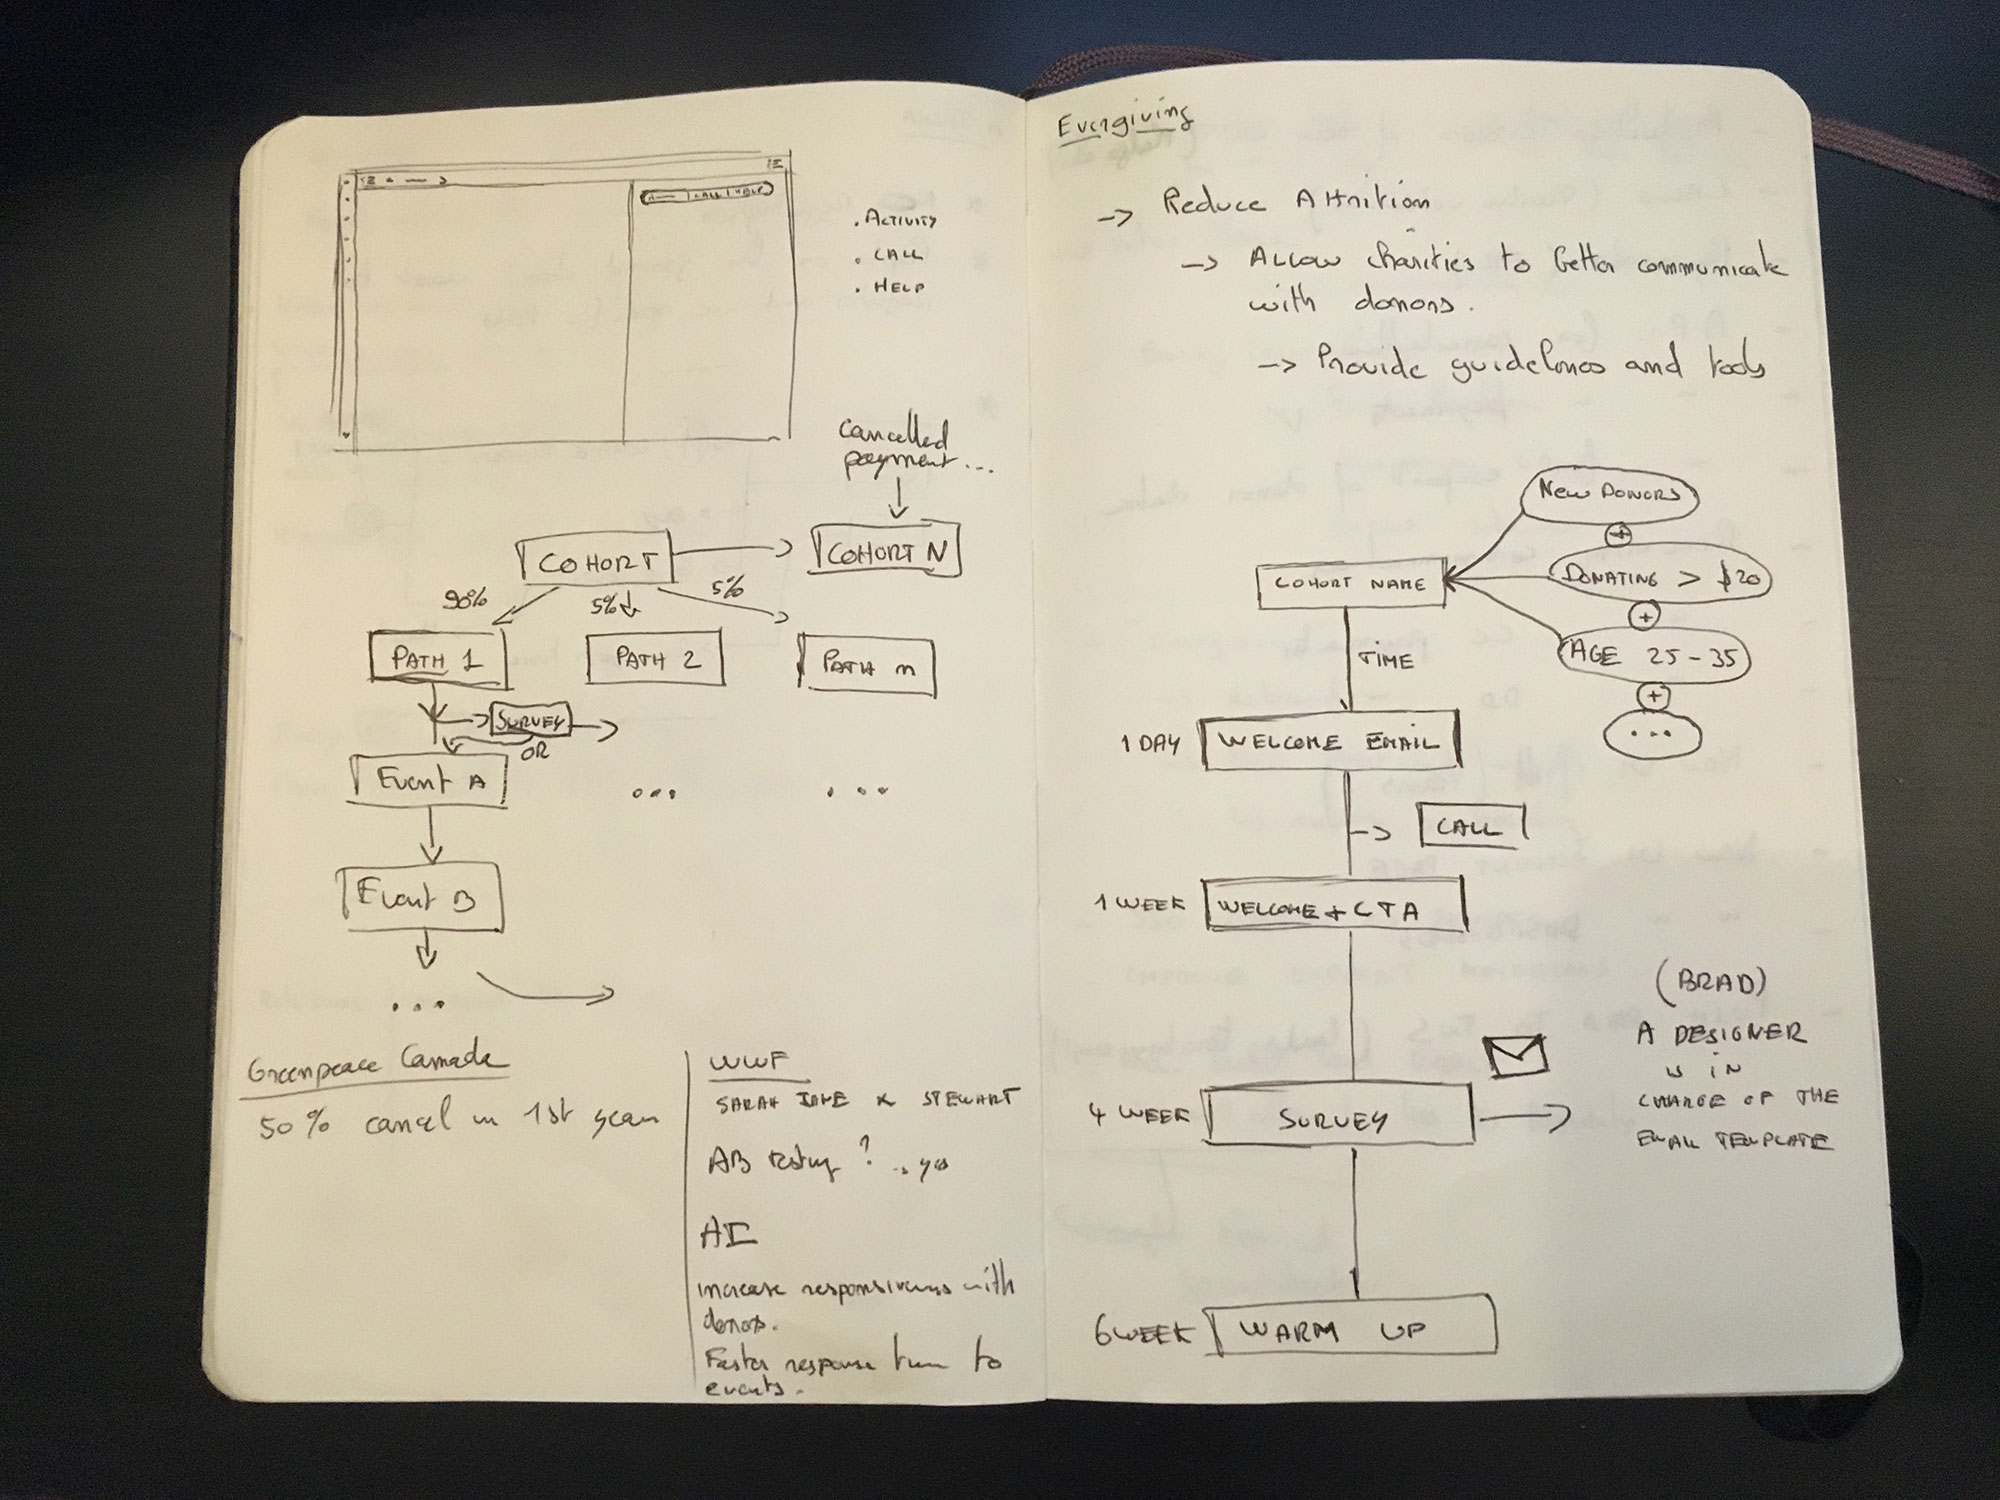 . ACTIVITY
. CALL
. HELP
CALL | HELP
cancelled
payment...
COHORT
COHORT N
90%
5%
5%
PATH 1
PATH 2
PATH n
SURVEY
OR
Event A
...
...
Event B
...
Greenpeace Canada
50% cancel in 1st year
WWF
SARAH & STEWART
AB testing ? .. yes
AI
increase responsiveness with
donors.
Faster response time to
events.
Evergiving
-> Reduce Attrition
-> Allow charities to better communicate
with donors.
-> Provide guidelines and tools
New Donors
+
DONATING > $20
+
AGE 25-35
+
...
COHORT NAME
TIME
1 DAY WELCOME EMAIL
-> CALL
1 WEEK WELCOME + CTA
4 WEEK SURVEY
6 WEEK WARM UP
(BRAD)
A DESIGNER
IS IN
CHARGE OF THE
EMAIL TEMPLATE